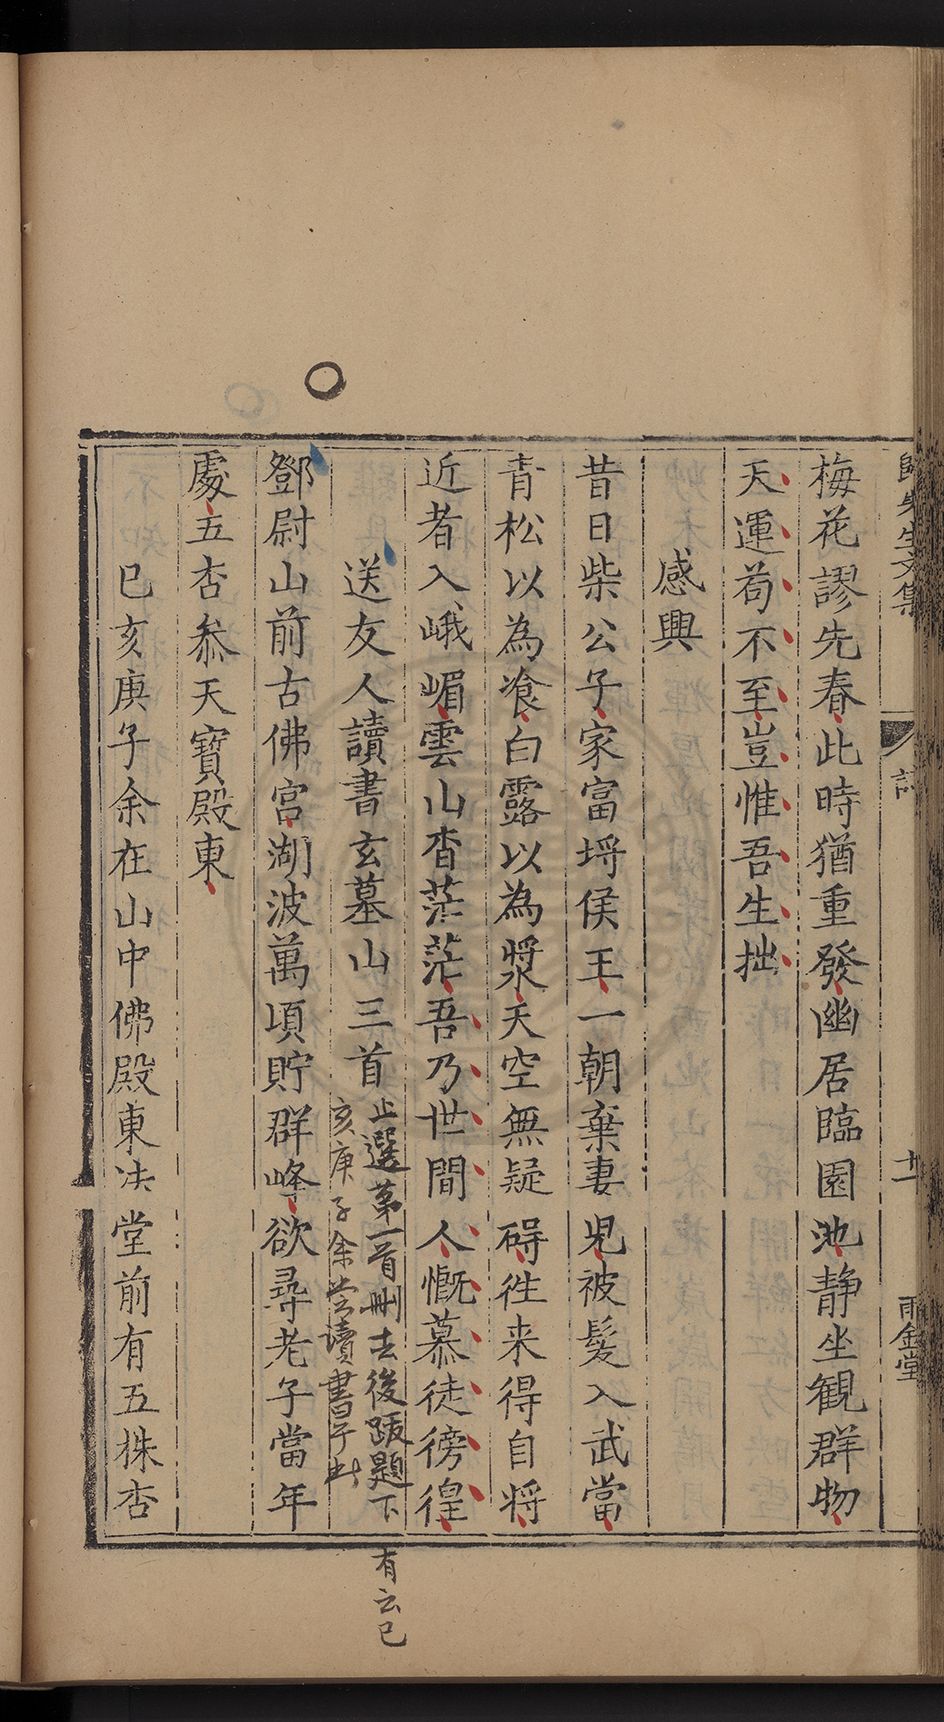 歸先生文集 詩 十一 雨金堂
梅花謬先春此時猶重發幽居臨園池静坐観群物
天運苟不至豈惟吾生拙
感興
昔日柴公子家富埒侯王一朝棄妻児被髪入武當
青松以為飡白露以為漿天空無疑碍徃来得自将
近者入峨嵋雲山杳茫茫吾乃世間人慨慕徒徬徨
送友人讀書玄墓山三首
止選第一首刪去後跋題下有云己
亥庚子余嘗讀書于此
鄧尉山前古佛宫湖波萬頃貯群峰欲尋老子當年
處五杏叅天寳殿東
己亥庚子余在山中佛殿東决堂前有五株杏